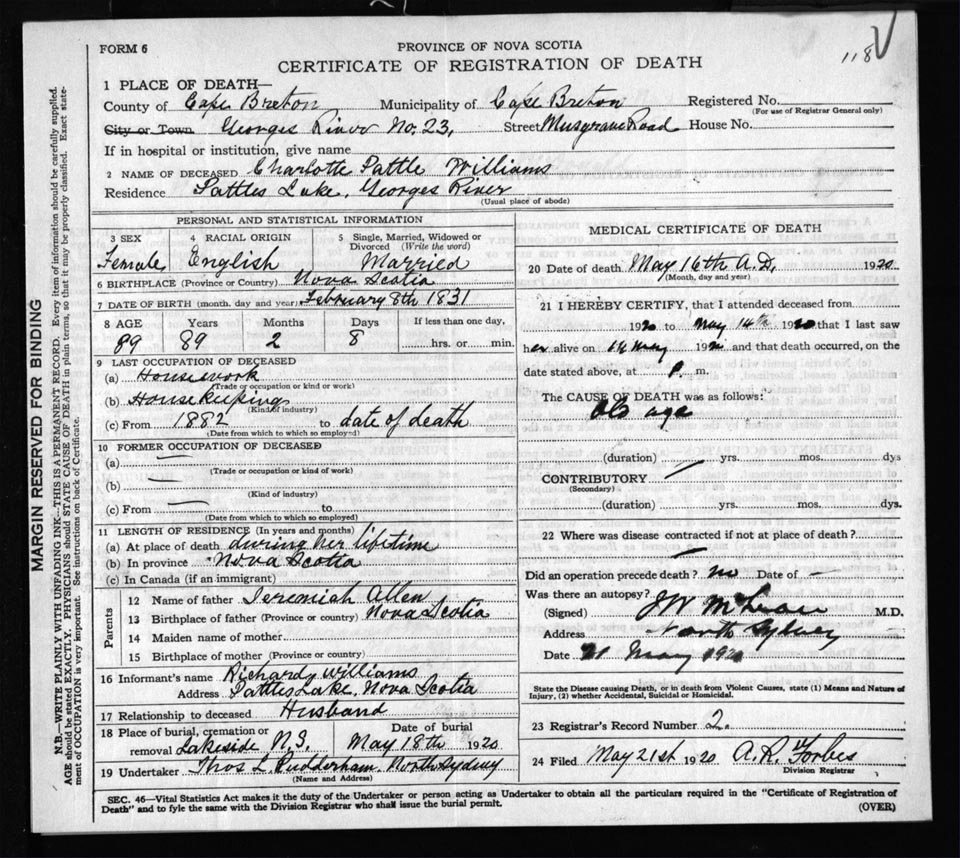 FORM 6
PROVINCE OF NOVA SCOTIA
118
CERTIFICATE OF REGISTRATION OF DEATH
1 PLACE OF DEATH—
County of Cape Breton Municipality of Cape Breton Registered No.
(For use of Registrar General only)
City or Town Georges River No. 23, Street Musgrave Road House No.
If in hospital or institution, give name
2 NAME OF DECEASED Charlotte Pattle Williams
Residence Pattles Lake, Georges River
(Usual place of abode)
PERSONAL AND STATISTICAL INFORMATION
3 SEX 4 RACIAL ORIGIN 5 Single, Married, Widowed or
Divorced (Write the word)
Female English Married
6 BIRTHPLACE (Province or Country) Nova Scotia
7 DATE OF BIRTH (month, day and year) February 8th 1831
8 AGE Years Months Days If less than one day,
89 89 2 8 hrs. or min.
9 LAST OCCUPATION OF DECEASED
(a) Housework
(Trade or occupation or kind or work)
(b) Housekeeping
(Kind of industry)
(c) From 1882 to date of death
(Date from which to which so employed)
10 FORMER OCCUPATION OF DECEASED
(a) —
(Trade or occupation or kind of work)
(b) —
(Kind of industry)
(c) From to
(Date from which to which so employed)
11 LENGTH OF RESIDENCE (In years and months)
(a) At place of death during her lifetime
(b) In province Nova Scotia
(c) In Canada (if an immigrant)
Parents
12 Name of father Jeremiah Allen
13 Birthplace of father (Province or country) Nova Scotia
14 Maiden name of mother
15 Birthplace of mother (Province or country)
16 Informant's name Richard Williams
Address Pattles Lake, Nova Scotia
17 Relationship to deceased Husband
18 Place of burial, cremation or Date of burial
removal Lakeside N.S. May 18th 1920
19 Undertaker Thos L Rudderham, North Sydney
(Name and Address)
MEDICAL CERTIFICATE OF DEATH
20 Date of death May 16th A.D. 1920
(Month, day and year)
21 I HEREBY CERTIFY, that I attended deceased from
1920 to May 14th 1920 that I last saw
her alive on 14 May 192 and that death occurred, on the
date stated above, at P. m.
The CAUSE OF DEATH was as follows:
Old age
(duration) yrs. mos. dys
CONTRIBUTORY —
(Secondary)
(duration) yrs. mos. dys.
22 Where was disease contracted if not at place of death?
—
Did an operation precede death? no Date of —
Was there an autopsy?
(Signed) M.D.
Address North Sydney
Date 21 May 192
State the Disease causing Death, or in death from Violent Causes, state (1) Means and Nature of
Injury, (2) whether Accidental, Suicidal or Homicidal.
23 Registrar's Record Number 2.
24 Filed May 21st 1920 A.R. Forbes
Division Registrar
SEC. 46—Vital Statistics Act makes it the duty of the Undertaker or person acting as Undertaker to obtain all the particulars required in the "Certificate of Registration of
Death" and to fyle the same with the Division Registrar who shall issue the burial permit.
(OVER)
MARGIN RESERVED FOR BINDING
N.B.—WRITE PLAINLY WITH UNFADING INK—THIS IS A PERMANENT RECORD. Every item of information should be carefully supplied.
AGE should be stated EXACTLY. PHYSICIANS should STATE CAUSE OF DEATH in plain terms, so that it may be properly classified. Exact state-
ment of OCCUPATION is very important. See instructions on back of Certificate.